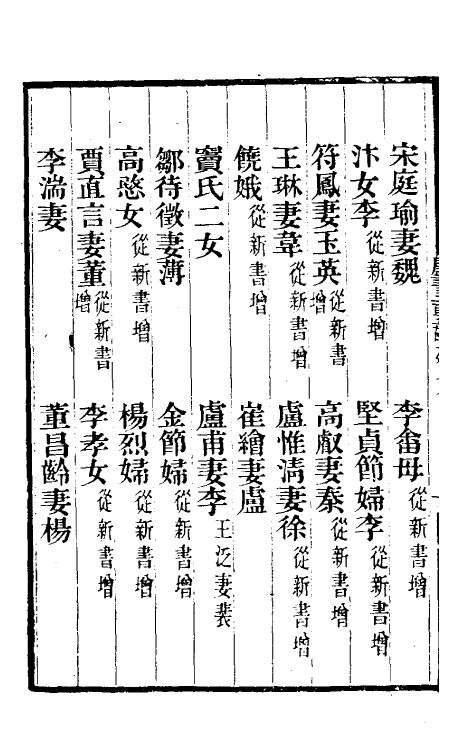 宋庭瑜妻魏　李畬母從新書增
汴女李從新書增　堅貞節婦李從新書增
符鳳妻玉英從新書增　高叡妻秦從新書增
王琳妻韋從新書增　盧惟清妻徐從新書增
饒娥從新書增　崔繪妻盧
竇氏二女　盧甫妻李王泛妻裴
鄒待徵妻薄　金節婦從新書增
高愍女從新書增　楊烈婦從新書增
賈直言妻董從新書增　李孝女從新書增
李湍妻　董昌齡妻楊